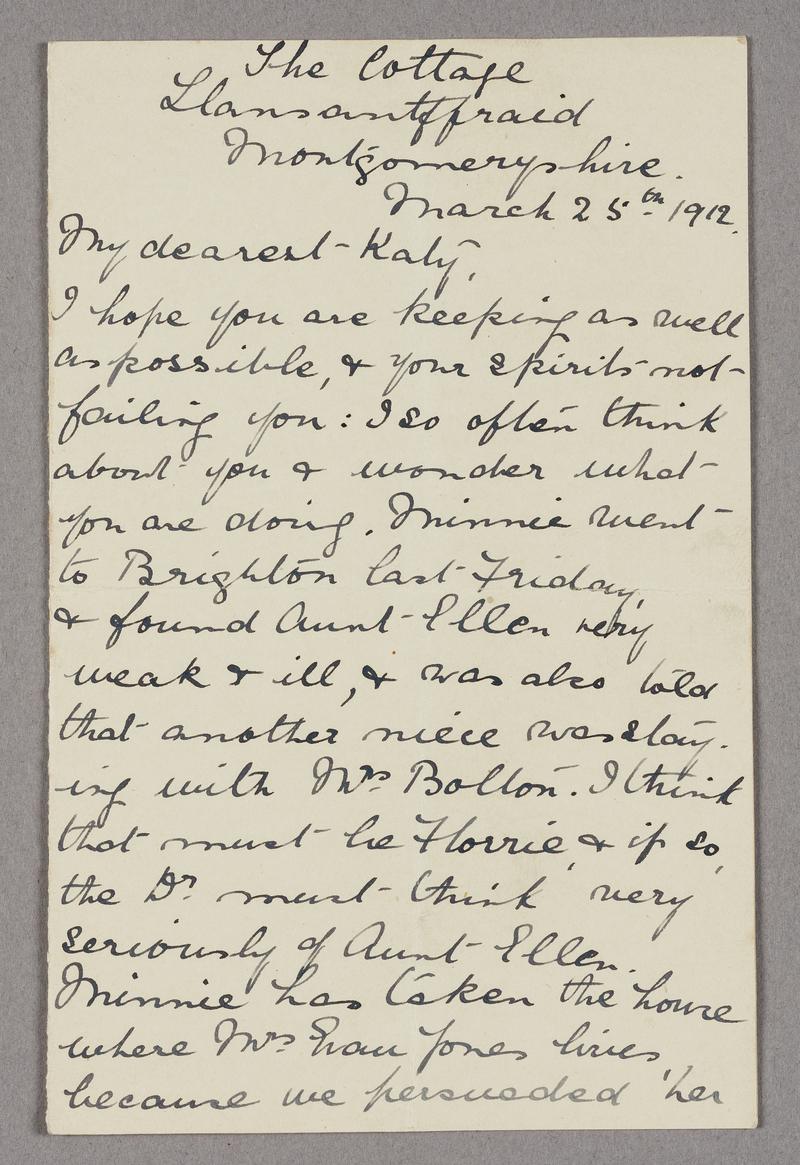 The Cottage
Llansantffraid
Montgomeryshire.
March 25th 1912.
My dearest Katy,
I hope you are keeping as well
as possible, & your spirits not
failing you: I so often think
about you & wonder what
you are doing. Minnie went
to Brighton last Friday,
& found Aunt Ellen very
weak & ill, & was also told
that another niece was stay-
ing with Mrs Bolton. I think
that must be Florrie, & if so,
the Dr. must think very
seriously of Aunt Ellen.
Minnie has taken the house
where Mrs Evan Jones lives,
because we persueded her